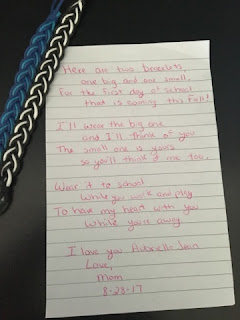 Here are two bracelets,
one big and one small,
For the first day of school
that is coming this Fall!
I'll wear the big one
and I'll think of you
The small one is yours
so you'll think of me too.
Wear it to school
While you work and play
To have my heart with you
While you're away.
I love you Aubrielle Jean
Love,
Mom
8-28-17